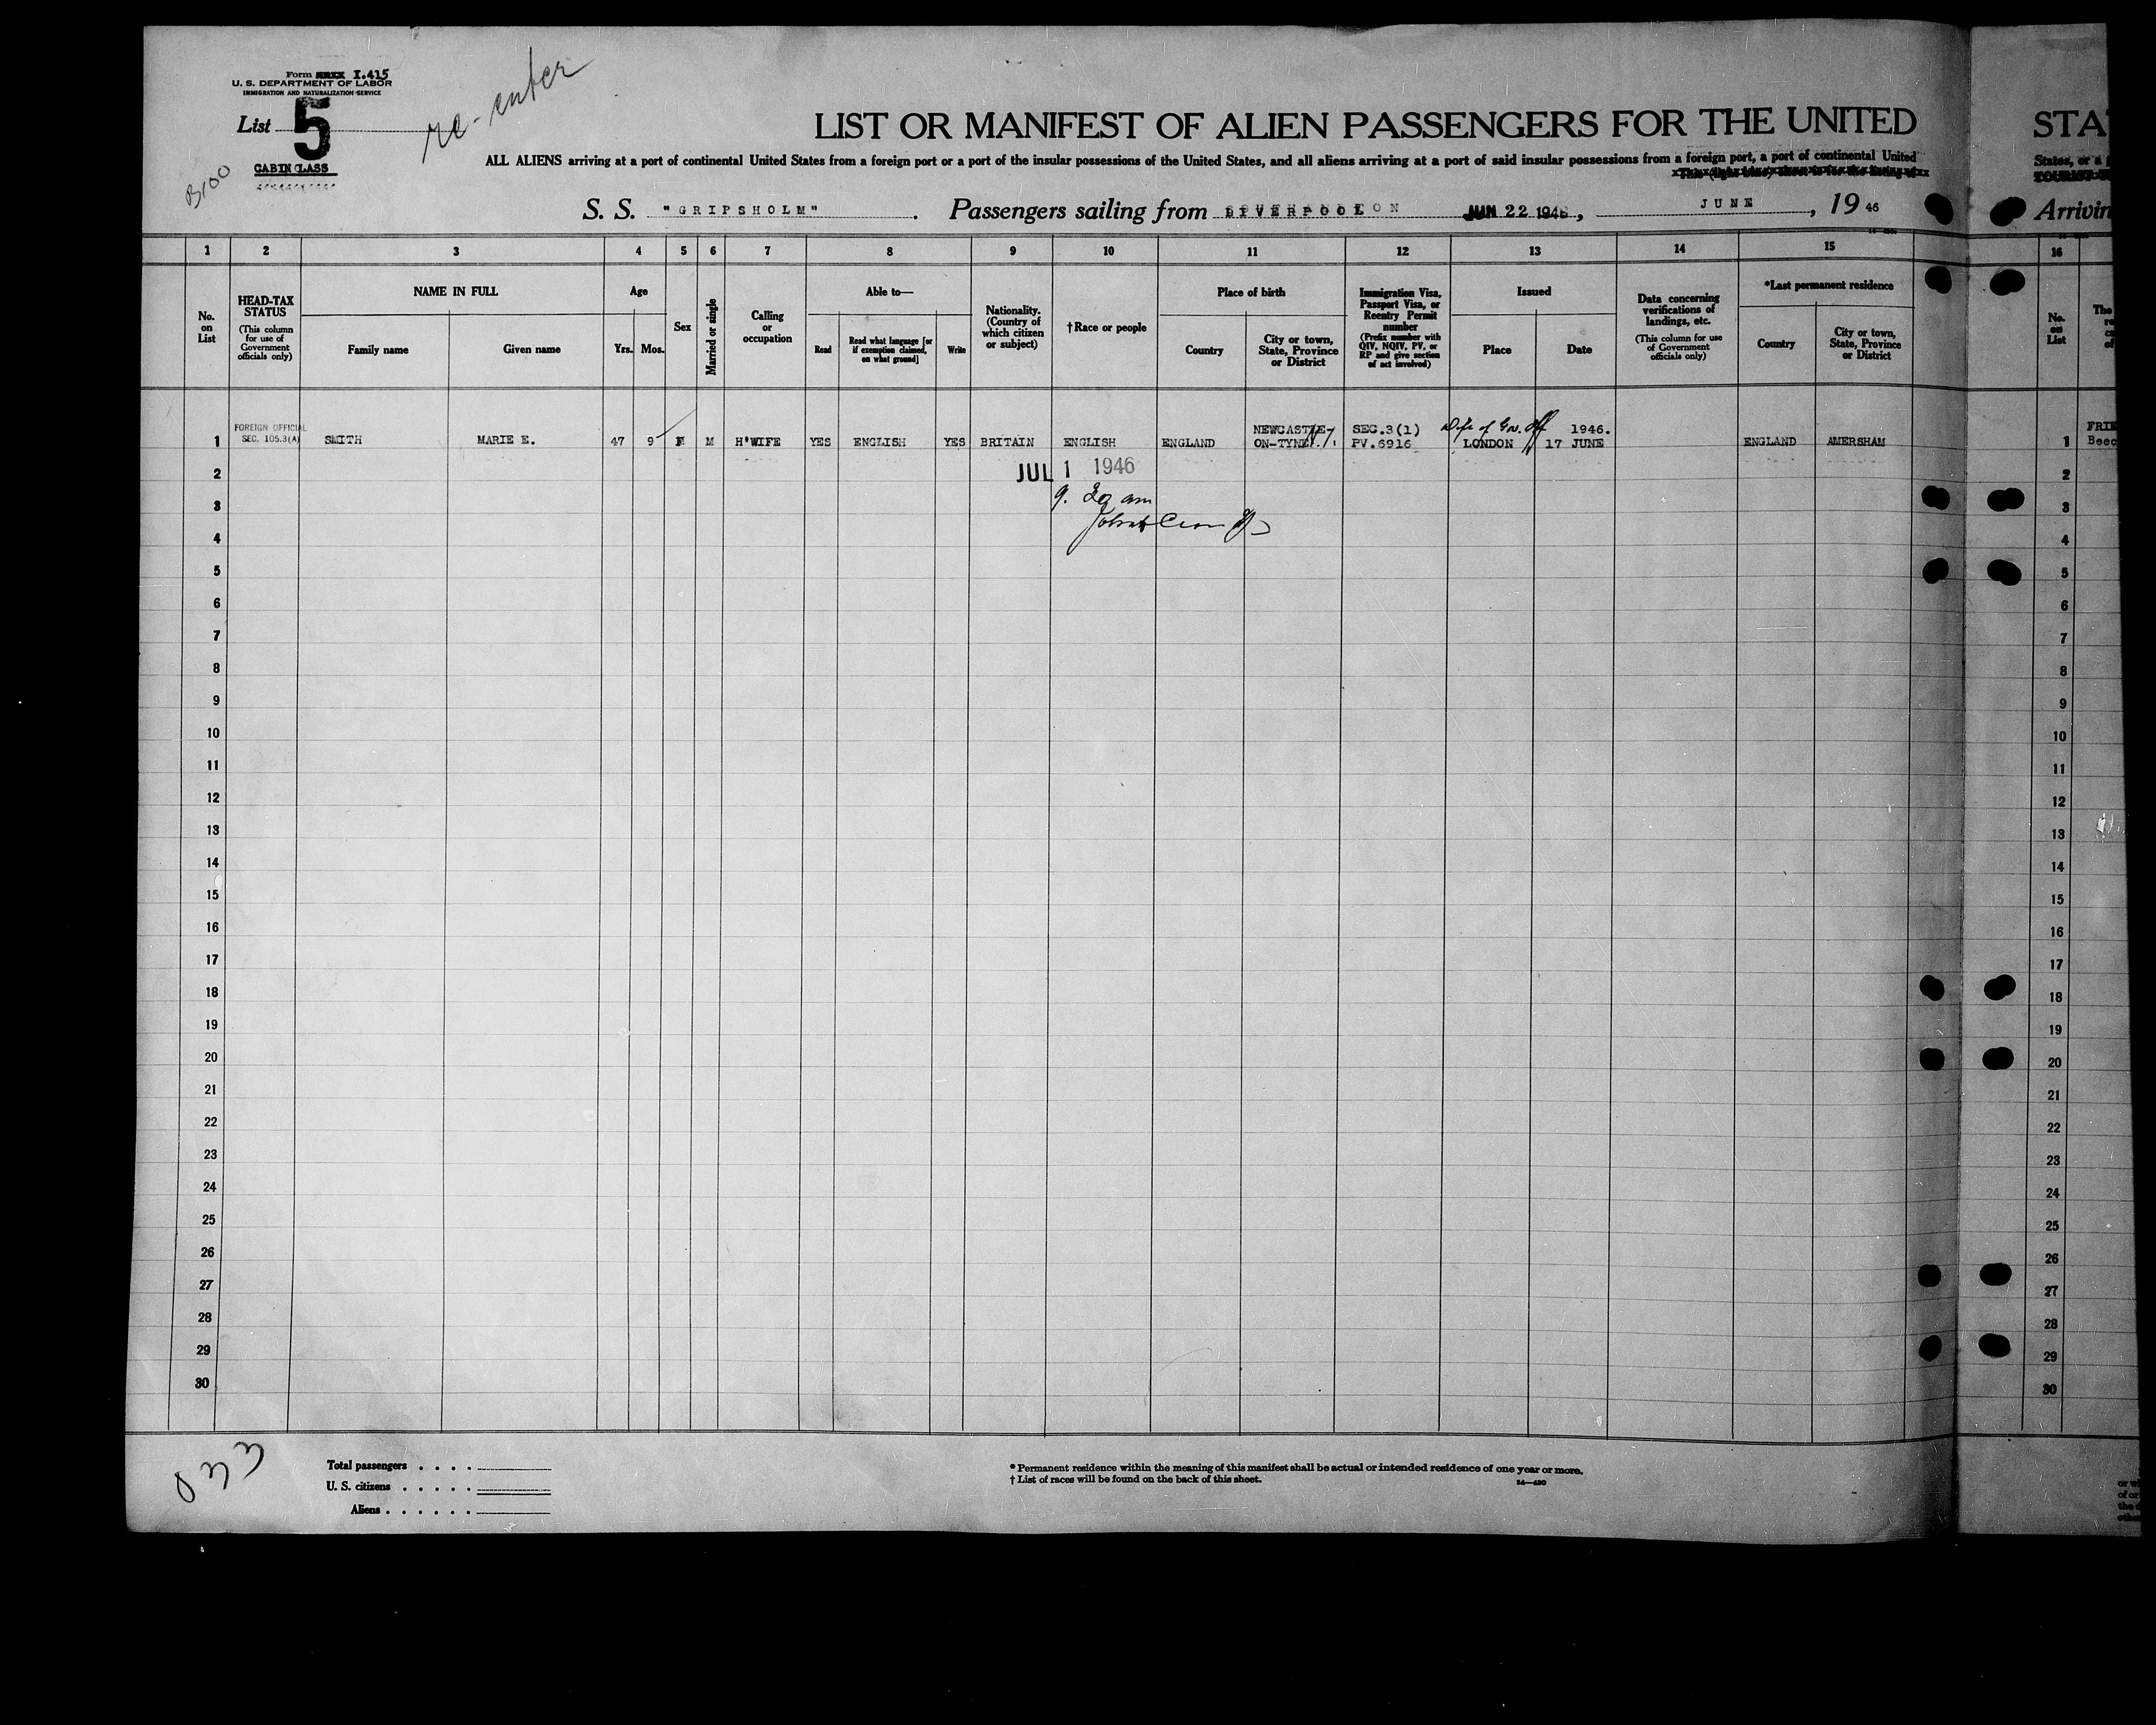 Form I-415
U. S. DEPARTMENT OF LABOR
IMMIGRATION AND NATURALIZATION SERVICE
List 5
CABIN CLASS
B100
re-enter
LIST OR MANIFEST OF ALIEN PASSENGERS FOR THE UNITED
STA
ALL ALIENS arriving at a port of continental United States from a foreign port or a port of the insular possessions of the United States, and all aliens arriving at a port of said insular possessions from a foreign port, a port of continental United
States, or a
S. S. "GRIPSHOLM". Passengers sailing from LIVERPOOL JUN 22 1946, JUNE, 19 46
Arrivin
1 2 3 4 5 6 7 8 9 10 11 12 13 14 15 16
No. on List
HEAD-TAX STATUS
(This column for use of Government officials only)
NAME IN FULL
Family name
Given name
Age
Yrs. Mos.
Sex
Married or single
Calling or occupation
Able to—
Read
Read what language [or if exemption claimed, on what ground]
Write
Nationality. (Country of which citizen or subject)
†Race or people
Place of birth
Country
City or town, State, Province or District
Immigration Visa, Passport Visa, or Reentry Permit number
(Prefix number with QIV, NQIV, PV, or RP and give section of act involved)
Issued
Place
Date
Data concerning verifications of landings, etc.
(This column for use of Government officials only)
*Last permanent residence
Country
City or town, State, Province or District
No. on List
The
FOREIGN OFFICIAL
SEC. 105.3(A)
NEWCASTLE
SEC.3(1)
Wife of Gov. Off
1946.
FRIE
1 SMITH MARIE E. 47 9 F M H'WIFE YES ENGLISH YES BRITAIN ENGLISH ENGLAND ON-TYNE PV.6916 LONDON 17 JUNE ENGLAND AMERSHAM 1 Beec
JUL 1 1946
2 2
9. 30 am
3 3
4 4
5 5
6 6
7 7
8 8
9 9
10 10
11 11
12 12
13 13
14 14
15 15
16 16
17 17
18 18
19 19
20 20
21 21
22 22
23 23
24 24
25 25
26 26
27 27
28 28
29 29
30 30
Total passengers . . . .
U. S. citizens . . . . .
Aliens . . . . . .
* Permanent residence within the meaning of this manifest shall be actual or intended residence of one year or more.
† List of races will be found on the back of this sheet.